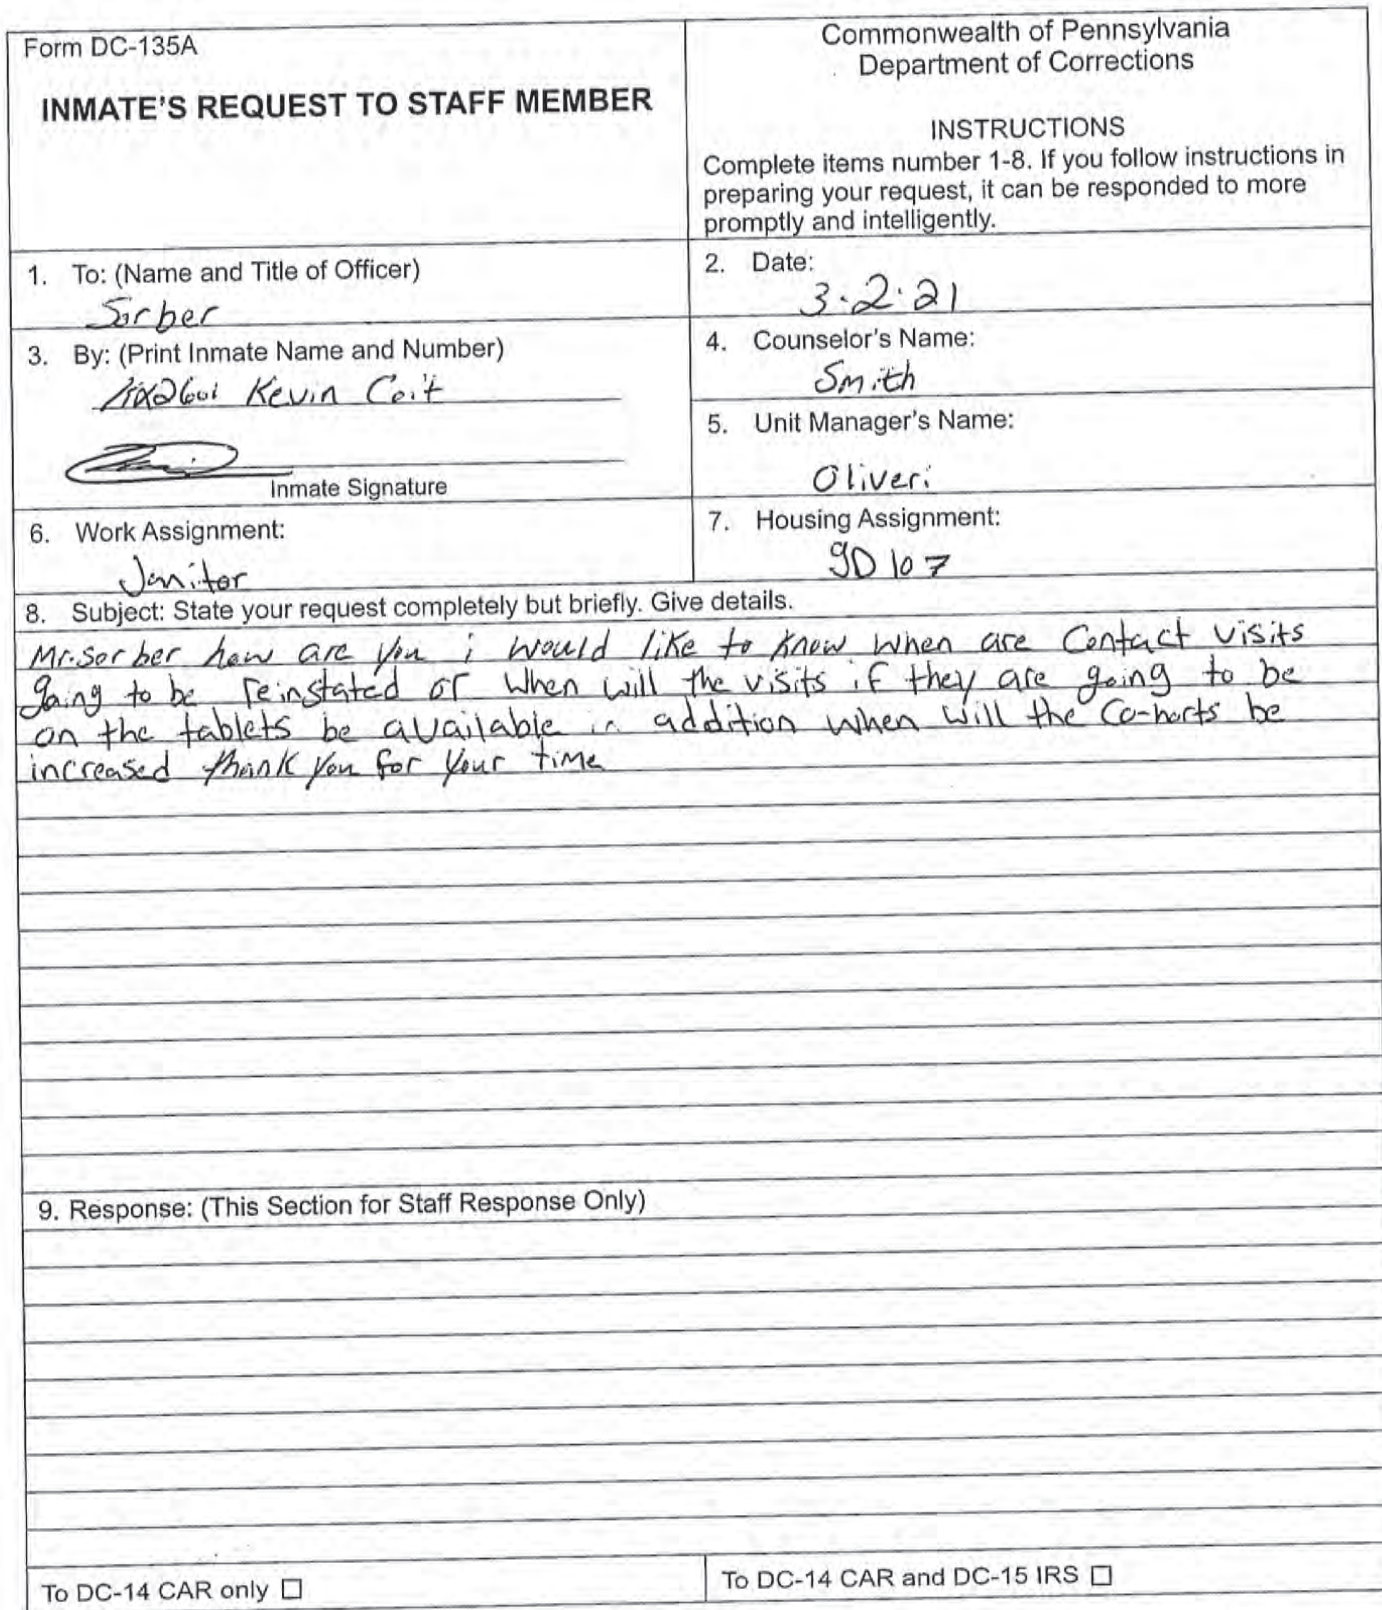 Form DC-135A
INMATE'S REQUEST TO STAFF MEMBER
Commonwealth of Pennsylvania
Department of Corrections
INSTRUCTIONS
Complete items number 1-8. If you follow instructions in
preparing your request, it can be responded to more
promptly and intelligently.
1. To: (Name and Title of Officer)
Sorber
2. Date:
3.2.21
3. By: (Print Inmate Name and Number)
Kevin Coit
Inmate Signature
4. Counselor's Name:
Smith
5. Unit Manager's Name:
Oliveri
6. Work Assignment:
Janitor
7. Housing Assignment:
gD 107
8. Subject: State your request completely but briefly. Give details.
Mr. Sorber how are you i would like to know when are Contact visits
going to be reinstated or when will the visits if they are going to be
on the tablets be available in addition when will the Co-horts be
increased thank you for your time
9. Response: (This Section for Staff Response Only)
To DC-14 CAR only ☐
To DC-14 CAR and DC-15 IRS ☐